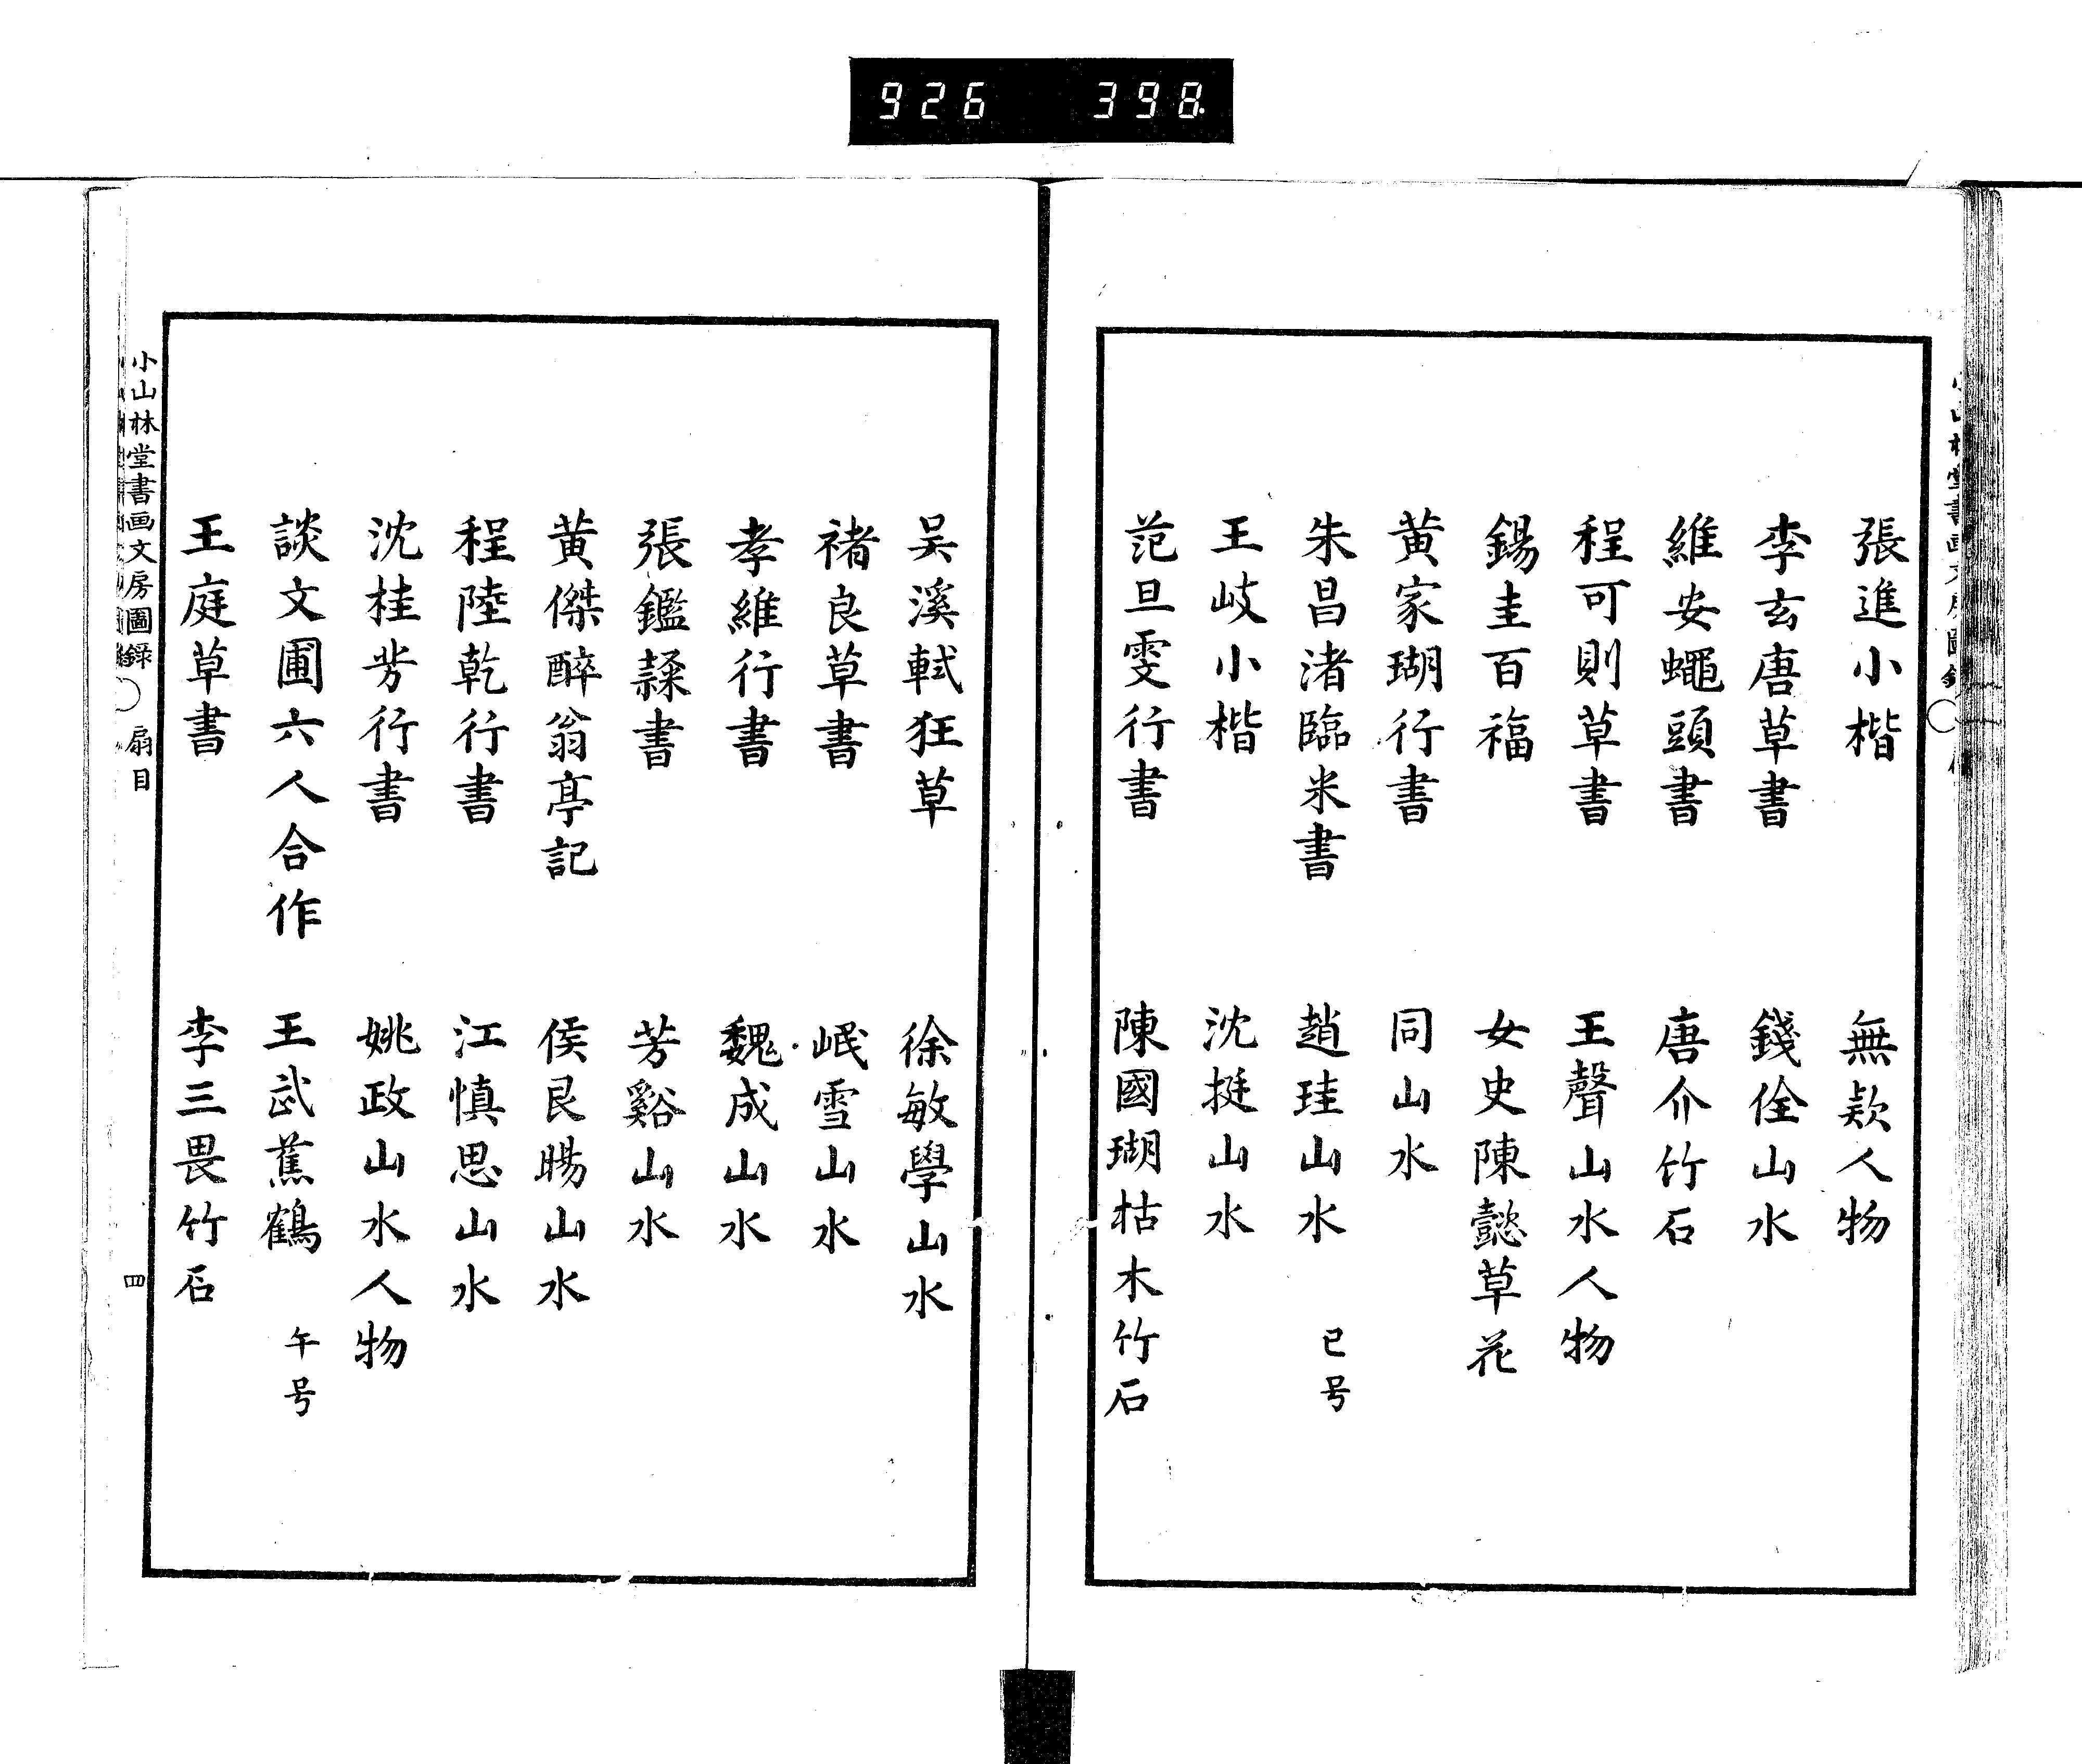 926 398
張進小楷 無欵人物
李玄唐草書 錢佺山水
維安蠅頭書 唐介竹石
程可則草書 王聲山水人物
錫圭百福 女史陳懿草花
黄家瑚行書 同山水
朱昌渚臨米書 趙珪山水 已号
王岐小楷 沈挺山水
范旦雯行書 陳國瑚枯木竹石
吴溪軾狂草 徐敏學山水
褚良草書 岷雪山水
孝維行書 魏成山水
張鑑隸書 芳谿山水
黄傑醉翁亭記 侯艮暘山水
程陸乾行書 江慎思山水
沈桂芳行書 姚政山水人物
談文圃六人合作 王武蕉鶴 午号
王庭草書 李三畏竹石
小山林堂書画文房圖録 扇目 四